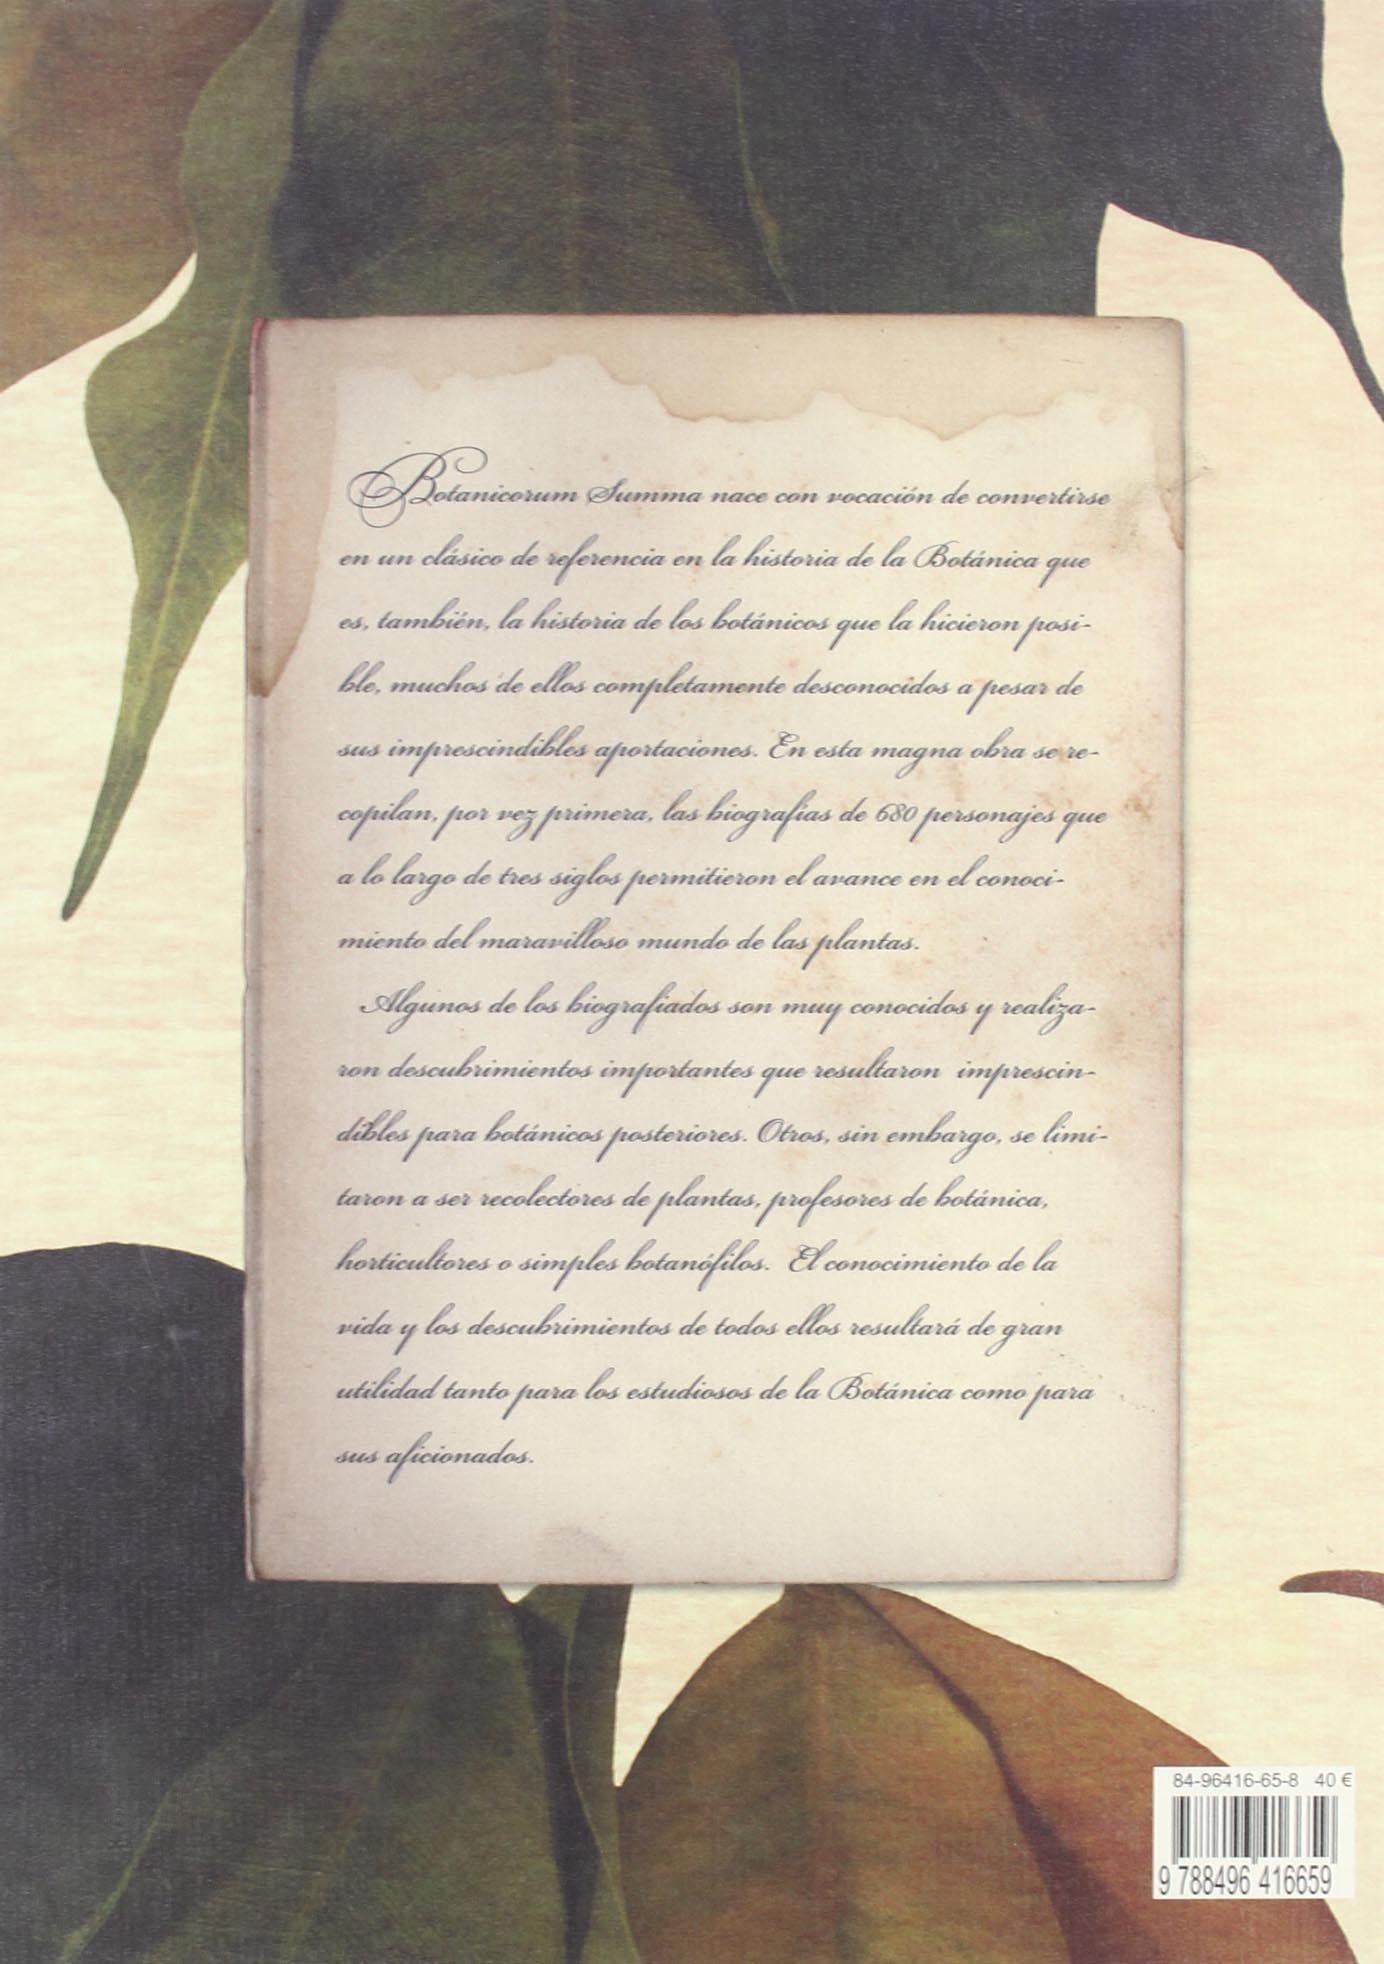 Botanicorum Summa nace con vocación de convertirse
en un clásico de referencia en la historia de la Botánica que
es, también, la historia de los botánicos que la hicieron posi-
ble, muchos de ellos completamente desconocidos a pesar de
sus imprescindibles aportaciones. En esta magna obra se re-
copilan, por vez primera, las biografías de 680 personajes que
a lo largo de tres siglos permitieron el avance en el conoci-
miento del maravilloso mundo de las plantas.
Algunos de los biografiados son muy conocidos y realiza-
ron descubrimientos importantes que resultaron imprescin-
dibles para botánicos posteriores. Otros, sin embargo, se limi-
taron a ser recolectores de plantas, profesores de botánica,
horticultores o simples botanófilos. El conocimiento de la
vida y los descubrimientos de todos ellos resultará de gran
utilidad tanto para los estudiosos de la Botánica como para
sus aficionados.
84-96416-65-8 40 €
9 788496 416659